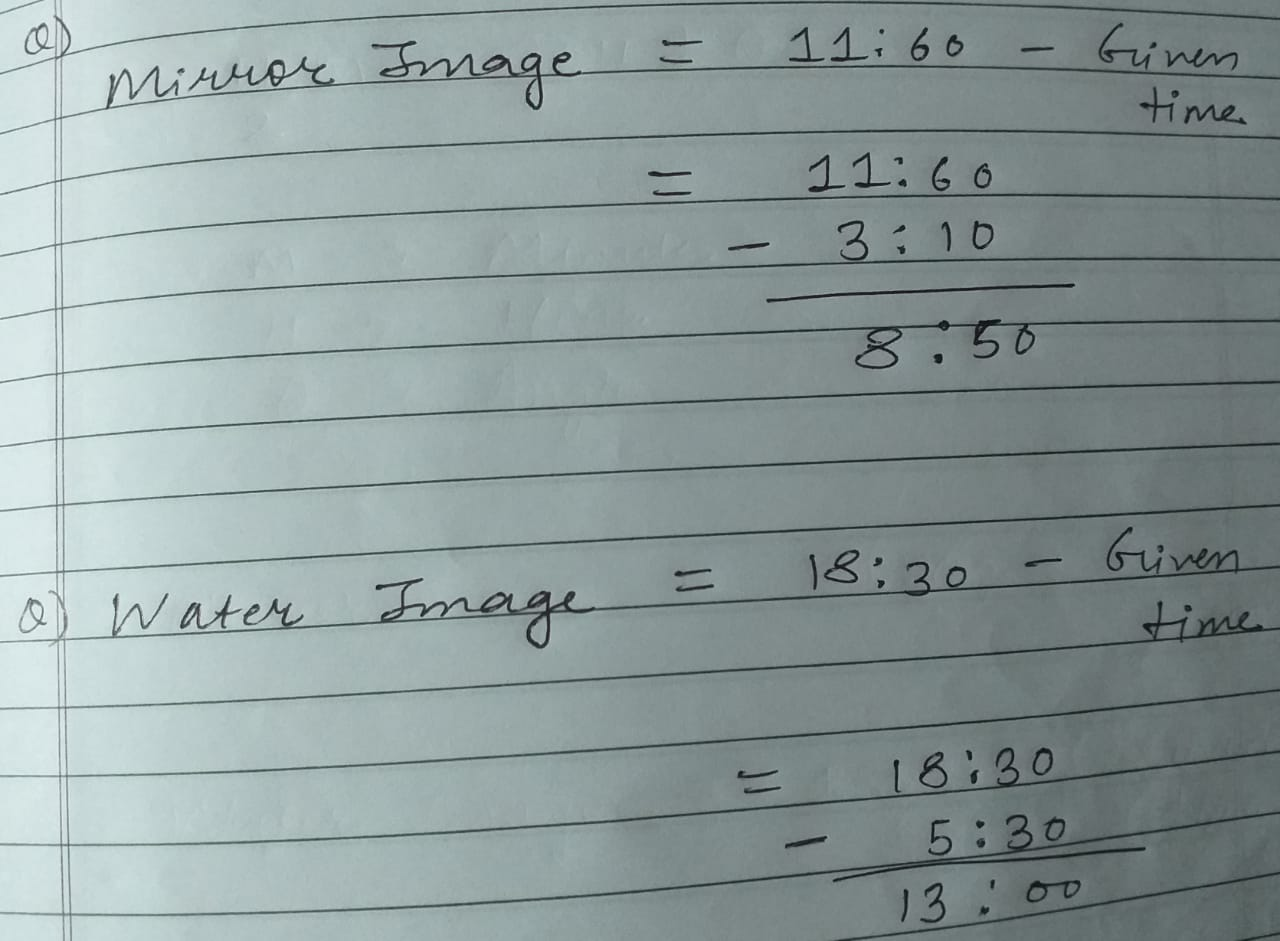 Q) Mirror Image = 11:60 - Given
time
= 11:60
- 3:10
8:50
Q) Water Image = 18:30 - Given
time
= 18:30
- 5:30
13:00